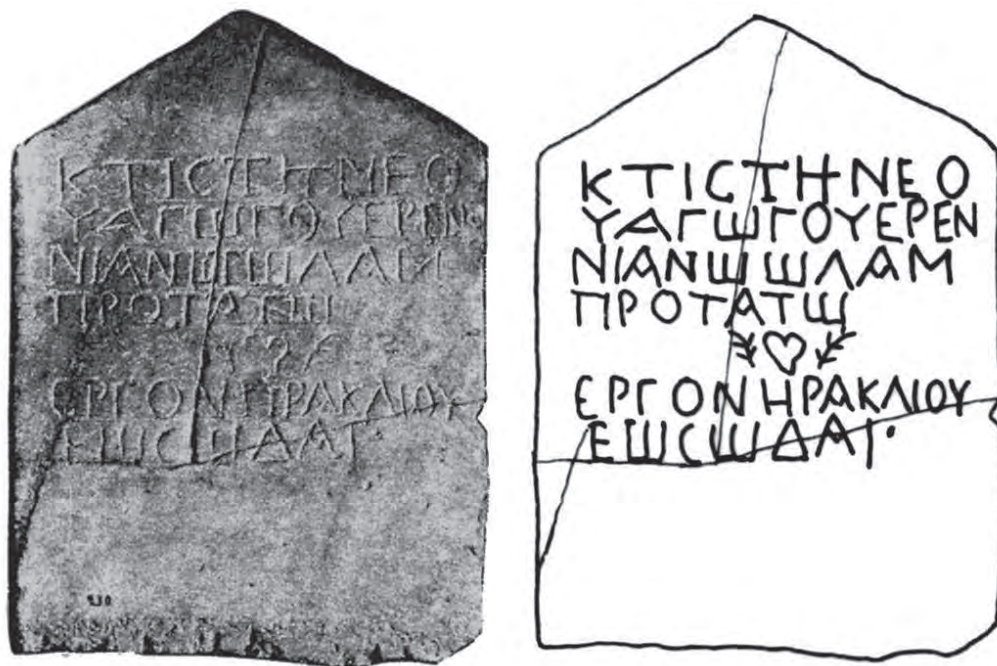 ΚΤΙϹΤΗΝΕΟ
ΥΑΓΩΓΟΥΕΡΕΝ
ΝΙΑΝΩΩΛΑΜ
ΠΡΟΤΑΤΩ
ΕΡΓΟΝΗΡΑΚΛΙΟΥ
ΕΩϹΩΔΑΓ·
ΚΤΙϹΤΗΝΕΟ
ΥΑΓΩΓΟΥΕΡΕΝ
ΝΙΑΝΩΩΛΑΜ
ΠΡΟΤΑΤΩ
ΕΡΓΟΝΗΡΑΚΛΙΟΥ
ΕΩϹΩΔΑΓ·